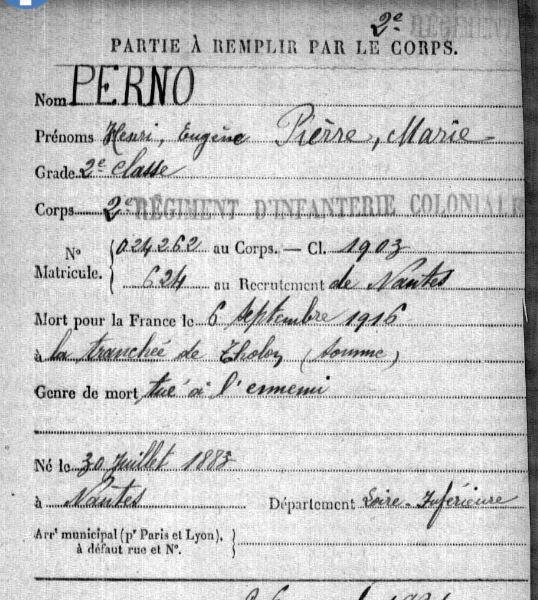 2e RÉGIMENT
PARTIE À REMPLIR PAR LE CORPS.
Nom PERNO
Prénoms Henri, Eugène Pierre, Marie
Grade 2e classe
Corps 2e RÉGIMENT D'INFANTERIE COLONIALE
No Matricule. { 024262 au Corps. — Cl. 1903
624 au Recrutement de Nantes
Mort pour la France le 6 septembre 1916
à la tranchée de (Somme)
Genre de mort tué à l'ennemi
Né le 30 Juillet 1883
à Nantes Département Loire-Inférieure
Arrt municipal (pr Paris et Lyon), }
à défaut rue et No.